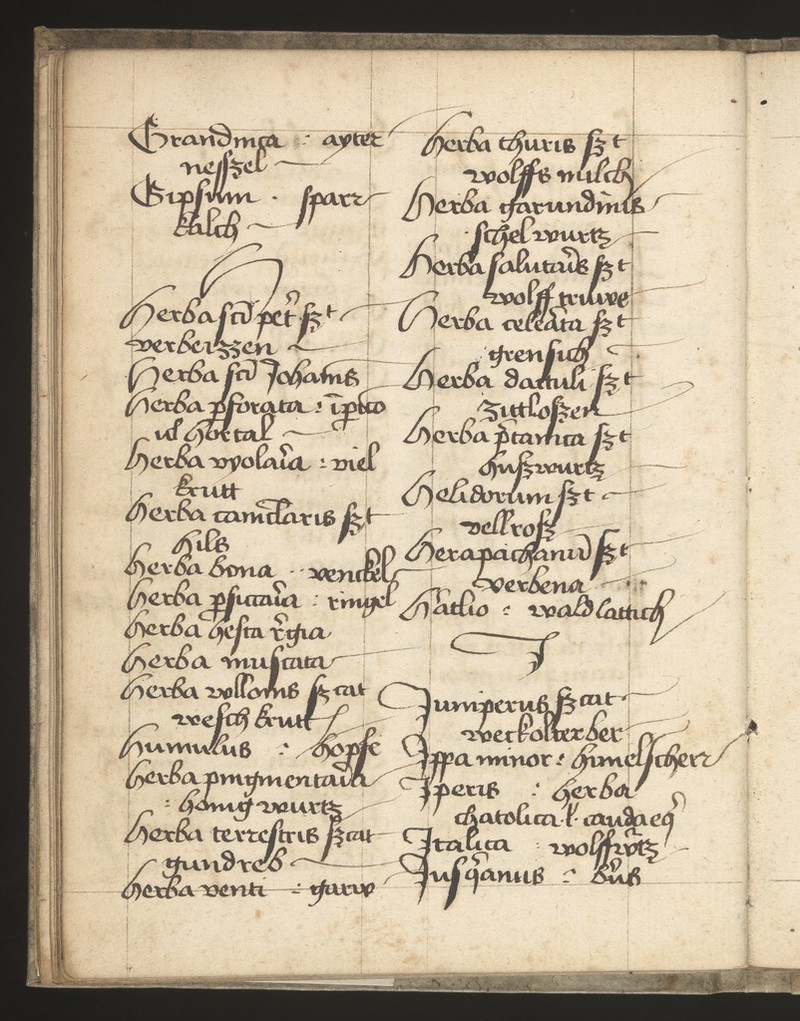 Grandinca : ayter
nesszel
Gipsum . sparr
kalch
H
Herba scī pet̉ sz t
verberzzen
Herba scī Johānis
Herba ꝑforata : īꝑico
ul hortal
Herba vyolaīa : viel
krutt
Herba
hils
Herba bona : venckel
Herba : ringel
Herba
Herba muscata
Herba sz cat
wesch krutt
Humulus : hopfe
Herba pingmentaīa
: honig wurtz
Herba terrestris sz cat
gundreb
Herba venti : garw
Herba thuris sz t
wolffs milch
Herba garundinis
schel wurtz
Herba salutaīs sz t
wolff truwe
Herba celeāta sz t
grensich
Herba dactuli sz t
zittloszen
Herba sz t
husz wurtz
Helidorum sz t
vell rosz
sz t
verbena
: wald lattich
J
Juniperus sz cat
weckolterber
Jppa minor : himelscherr
Jperis : herba
chatolica l̵ cauda eqͥ
Jtalica : wolffwꝛtz
Jusqͣanus :